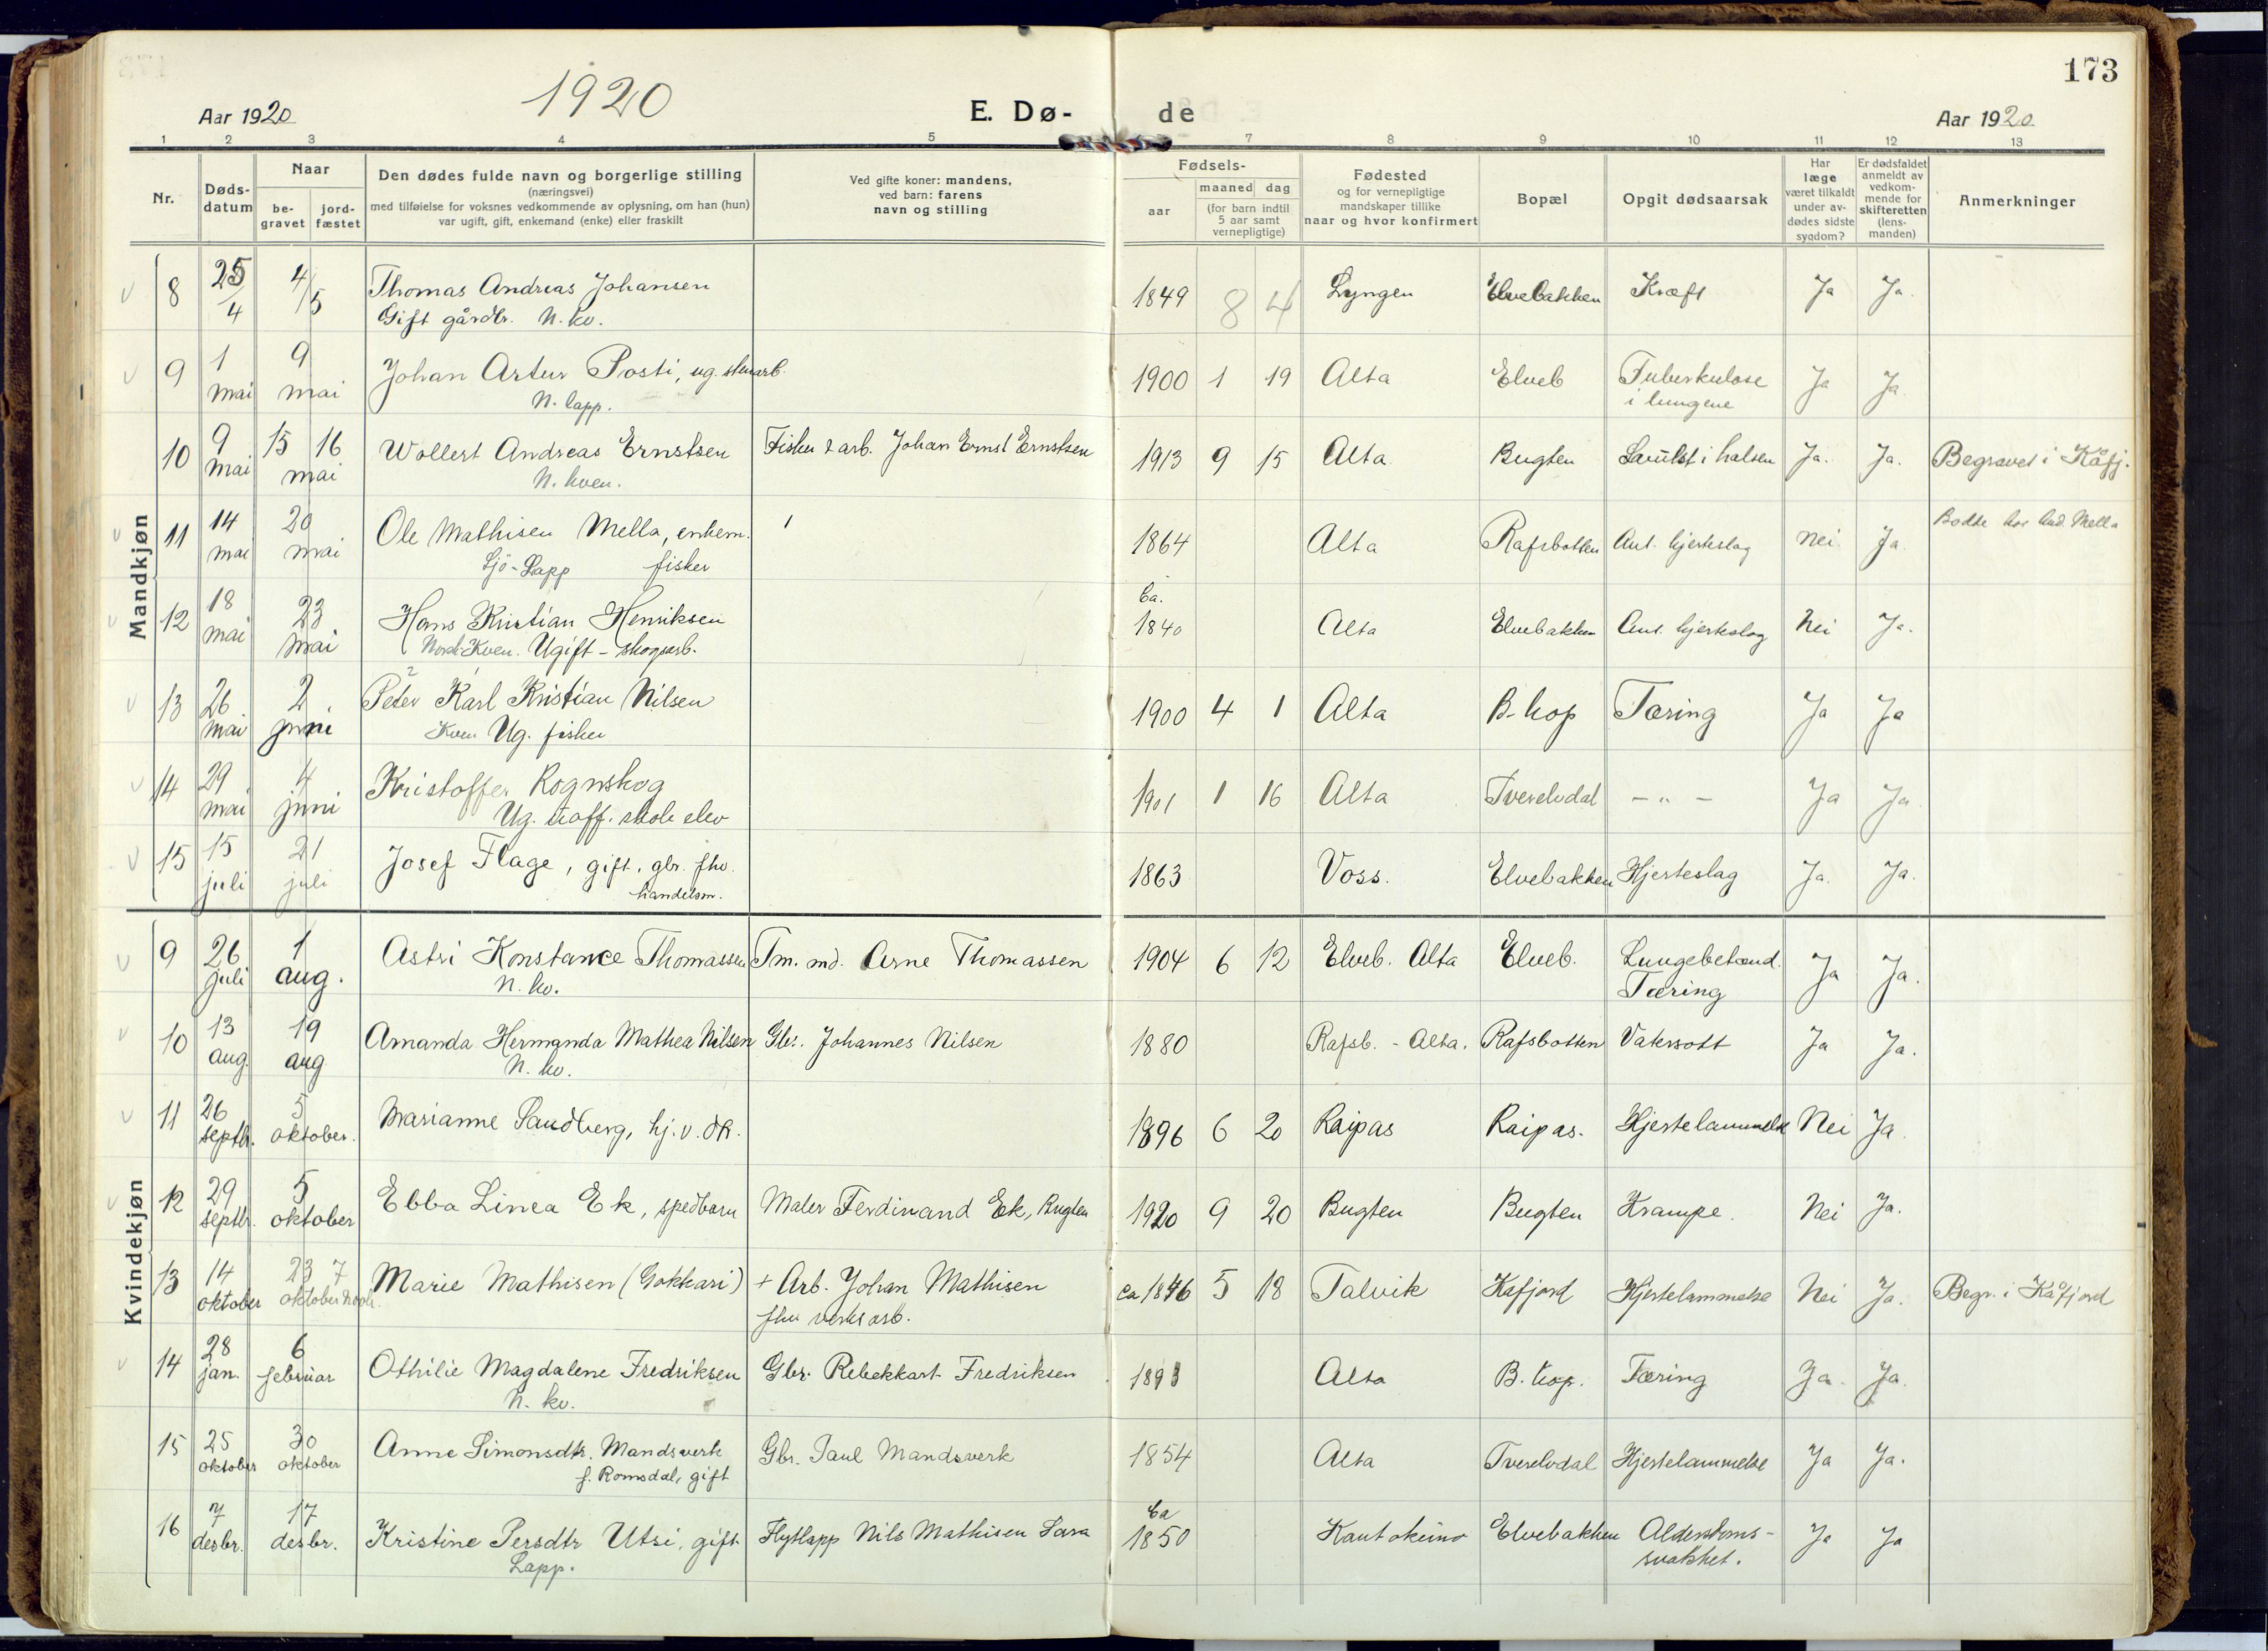 173
1920
Aar 1920
E. Dø-
de
Aar 1920
1 2 3 4 5 7 8 9 10 11 12 13
Nr.
Døds-
datum
Naar
be-
gravet
jord-
fæstet
Den dødes fulde navn og borgerlige stilling
(næringsvei)
med tilføielse for voksnes vedkommende av oplysning, om han (hun)
var ugift, gift, enkemand (enke) eller fraskilt
Ved gifte koner: mandens,
ved barn: farens
navn og stilling
Fødsels-
aar
maaned dag
(for barn indtil
5 aar samt
vernepligtige)
Fødested
og for vernepligtige
mandskaper tillike
naar og hvor konfirmert
Bopæl
Opgit dødsaarsak
Har
læge
været tilkaldt
under av-
dødes sidste
sygdom?
Er dødsfaldet
anmeldt av
vedkom-
mende for
skifteretten
(lens-
manden)
Anmerkninger
Mandkjøn
8 25/4 4/5 Thomas Andreas Johansen 1849 84 Lyngen Elvebakken Kræft Ja Ja.
Gift gårdbr. N. kv.
9 1 mai 9 mai Johan Artur Posti, ug. stuarb. 1900 1 19 Alta Elveb Tuberkulose Ja Ja.
N. lapp. i lungene
10 9 mai 15 16 mai Wollert Andreas Ernstsen Fisker & arb. Johan Ernst Ernstsen 1913 9 15 Alta Bugten Svulst i halsen Ja. Ja. Begravet i Kåfj.
N. kven.
11 14 mai 20 mai Ole Mathisen Mella, enkem. 1864 Alta Rafsbotten Ant. hjerteslag Nei Ja. Bodde hos And. Mella
Sjö-Lapp fisker
12 18 mai 23 mai Hans Kristian Henriksen Ca. 1840 Alta Elvebakken Ant. hjerteslag Nei Ja.
Norsk-Kven. Ugift - skogsarb.
13 26 mai 2 juni Peter Karl Kristian Nilsen 1900 4 1 Alta B-hop Tæring Ja Ja
Kven Ug. fisker
14 29 mai 4 juni Kristoffer Rognskog 1901 1 16 Alta Tverelvdal - " - Ja Ja
Ug. skole elev
15 15 juli 21 juli Josef Flage, gift, gbr. fhv. 1863 Voss. Elvebakken Hjerteslag Ja. Ja.
handelsm.
Kvindekjøn
9 26 juli 1 aug. Astri Konstance Thomassen Tm. md. Arne Thomassen 1904 6 12 Elveb. Alta Elveb. Lungebetænd. Ja Ja.
N. kv. Tæring
10 13 aug. 19 aug Amanda Hermanda Mathea Nilsen Gbr. Johannes Nilsen 1880 Rafsb. - Alta. Rafsbotten Vatersott Ja Ja.
N. kv.
11 26 septbr. 5 oktober. Marianne Sandberg, hj. v. dR. 1896 6 20 Raipas Raipas. Hjertelammelse Nei Ja.
12 29 septbr. 5 oktober Ebba Linea Ek, spedbarn Maler Ferdinand Ek, Bugten 1920 9 20 Bugten Bugten Krampe. Nei Ja.
13 14 oktober 23 oktober 7 Novbr. Marie Mathisen (Gokkari) + Arb. Johan Mathisen ca 1846 5 18 Talvik Kafjord Hjertelammelse Nei Ja. Begr. i Kåfjord
fhv verksarb.
14 28 jan. 6 februar Othilie Magdalene Fredriksen Gbr. Rebekkart Fredriksen 1893 Alta B. hop. Tæring Ja. Ja.
N. kv.
15 25 oktober 30 oktober Anne Simonsdtr. Mandsverk Gbr. Paul Mandsverk 1854 Alta Tverelvdal Hjertelammelse Ja Ja.
f. Romsdal, gift
16 7 desbr. 17 desbr. Kristine Persdtr Utsi, gift Flytlapp Nils Mathisen Sara Ca 1850 Kautokeino Elvebakken Alderdoms- Ja Ja
Lapp. svakhet.